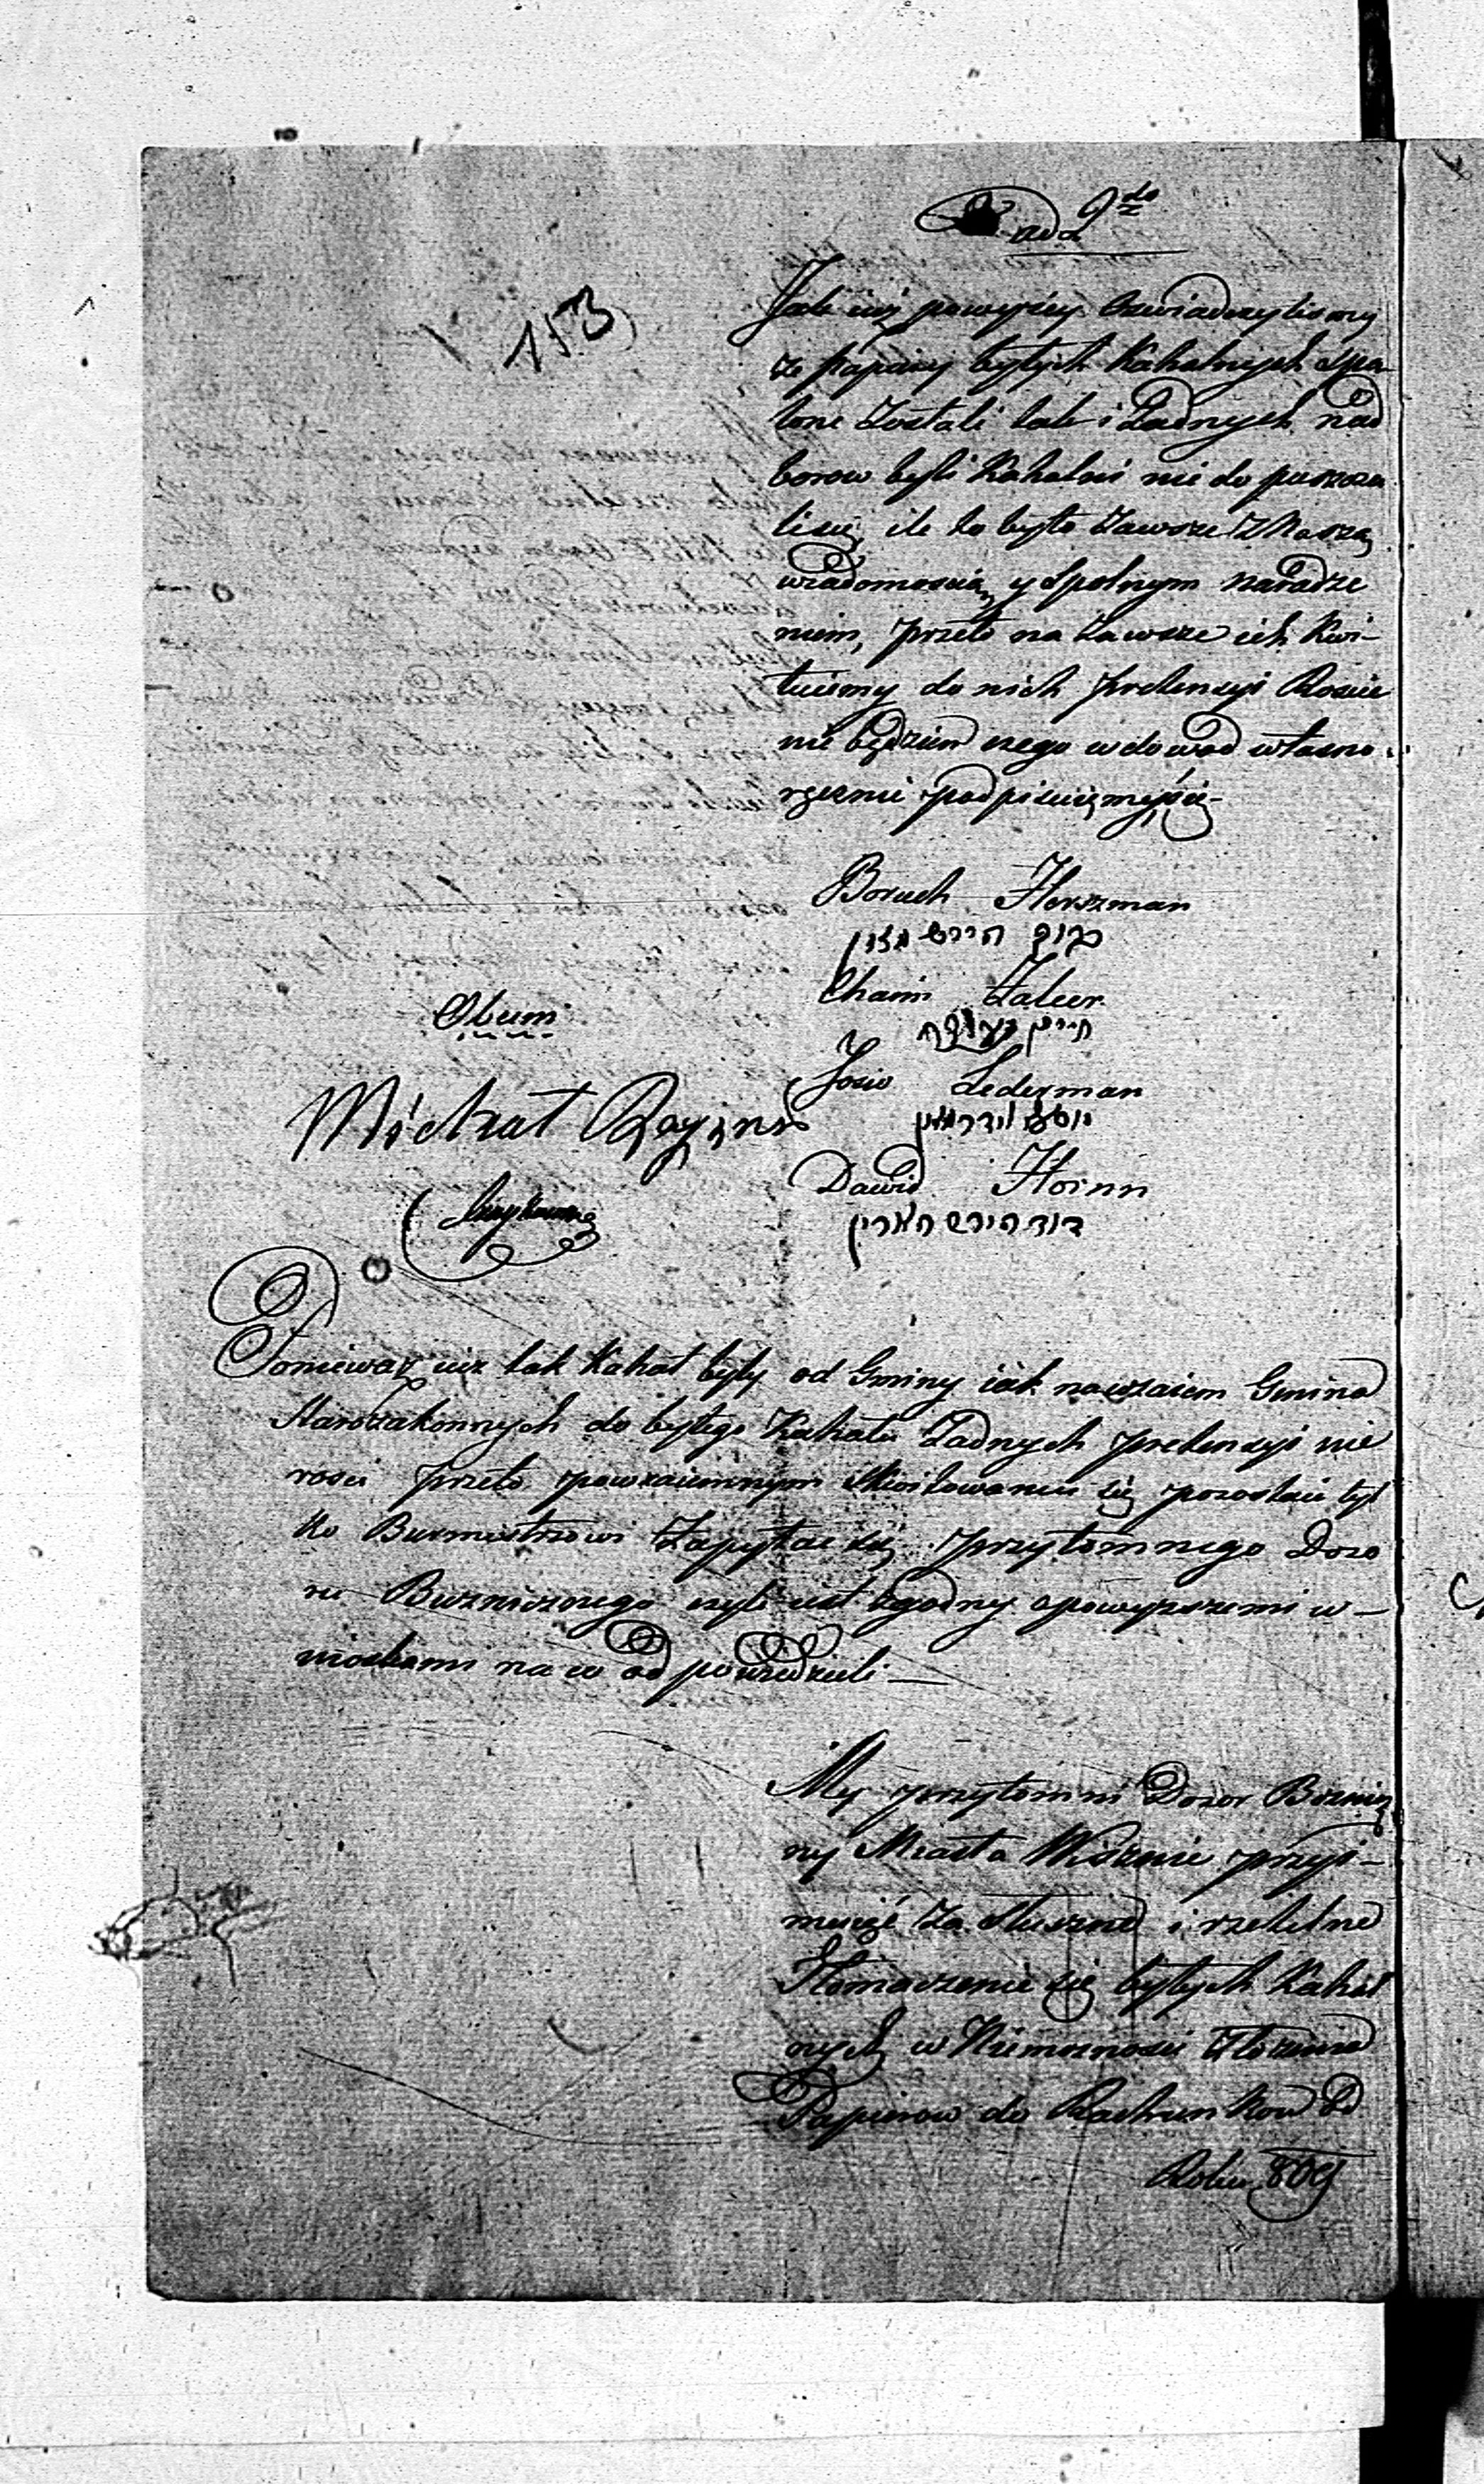 ad 2do
153
Jak iuż powyżey oswiadczylismy
że papiery byłych Kahalnych Spa-
lone Zostali tak i Żadnych nad
borow byli Kahalni nie do puszcza
li się, ile to było Zawsze Z Naszą
wiadomoscią y Spolnym naradze
niem, przeto na Zawsze ich Kwi-
tuiemy do nich pretensyi Roscic
nie będziem czego w dowod własno-
ręcznie podpisuięmy się
Boruch Herszman
ברוך הירש מאן
Chaim
חיים
Josio Lederman
יוסף לידרמאן
Dawid Hornn
דוד הירש הארין
Michał
Poniewaz iuz tak Kahał były od Gminy iak nawzaiem Gmina
Starozakonnych do byłego Kahału Żadnych pretensyi nie
rosci przeto powzaiemnym Skwitowaniu się pozostaie tyl
ko Burmistrzowi Zapytac się przytomnego Dozo
ru Bużniczonego czyli iest Zgodny z powyższemi w-
nioskami na co od powiedzieli —
My przytomni Dozor Bożnicz
ny Miasta przyi-
muięć za Słuszne i rzetelne
Tłomaczenie się byłych Kahal
nych w Niemoznosci Złozenia
Papierow do Rachunkow Od
Roku 809